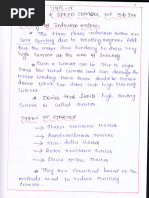 UNIT-IV
& SPEED CONTROL OF 3ϕ IM
of Induction motor:
→ The three phase induction motor are
Self starting due to rotating magnetic field
But the motor have tendency to draw very
high current at the time of starting.
→ Such a current can be 6 to 8 times
can damage the
motor winding. Hence there should be some
device which can limit such high starting
current.
→ Device that limits high starting
current is called starter.
TYPES OF STARTER
→ Stator resistance starter
→ Autotransformer starter
→ Star-delta starter
→ Rotor resistance starter
→ Direct online starter
→ They are classified based on the
methods used to reduce starting
current